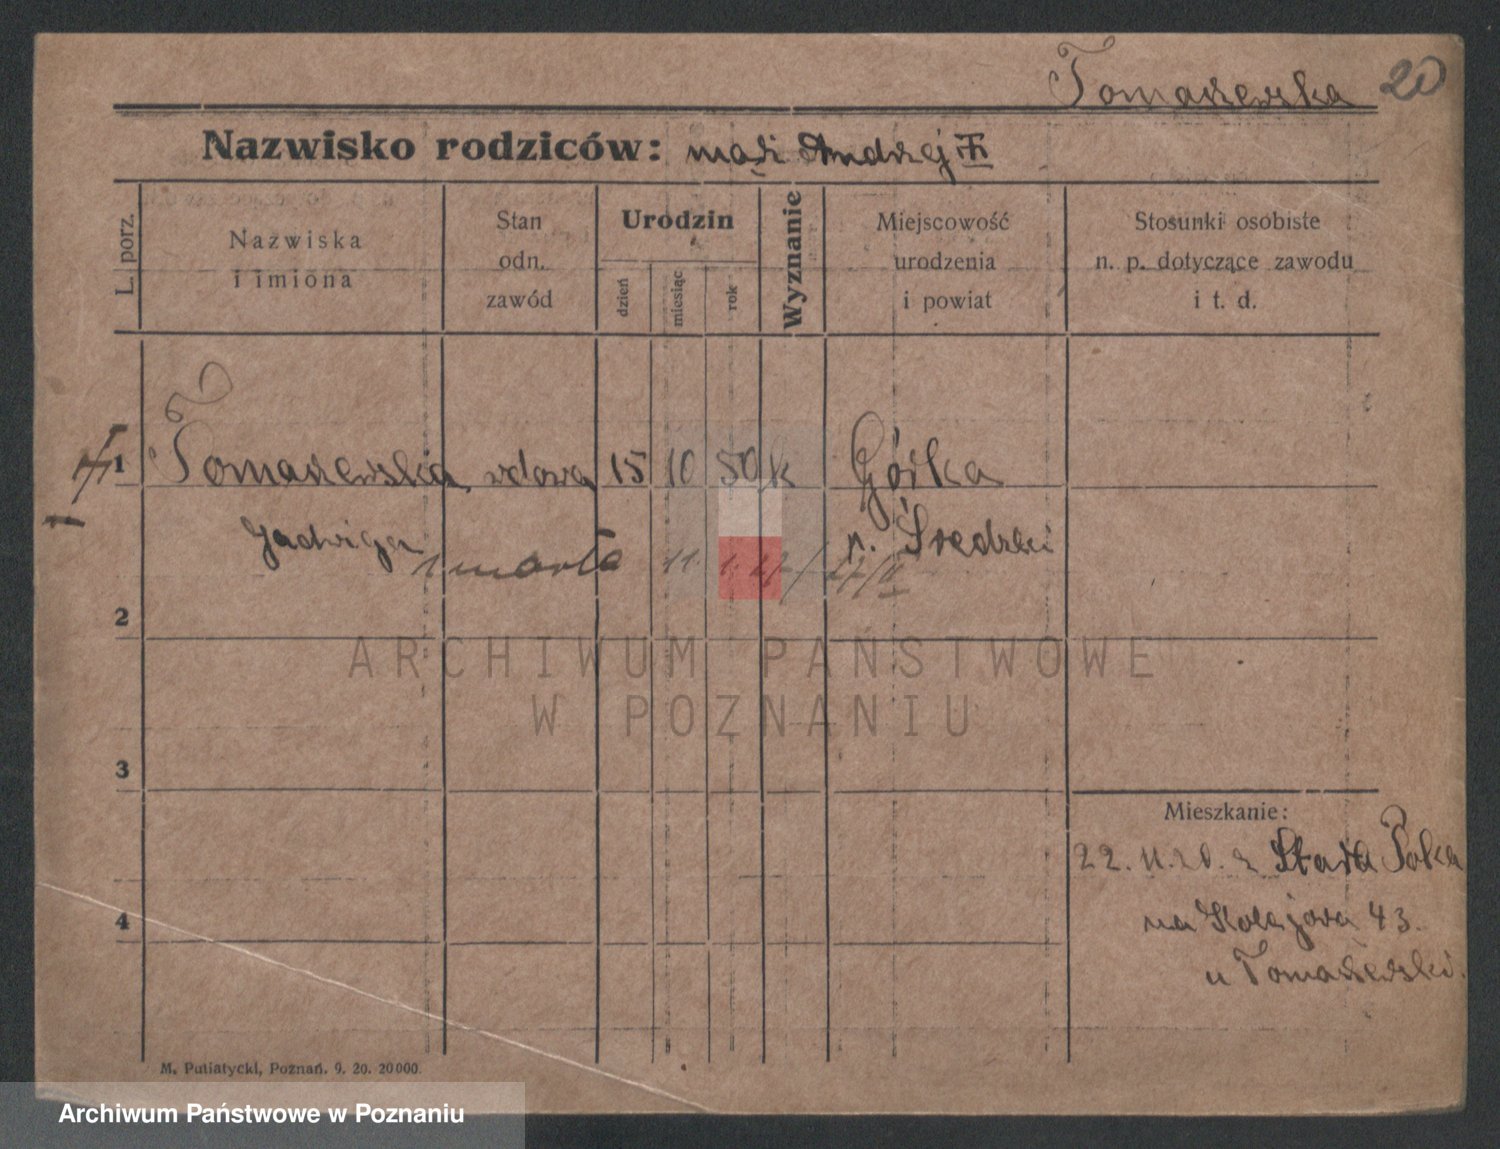 Tomaszewska 20
Nazwisko rodziców: mąż Andrzej
L. porz.
Nazwiska
i imiona
Stan
odn.
zawód
Urodzin
dzień
miesiąc
rok
Wyznanie
Miejscowość
urodzenia
i powiat
Stosunki osobiste
n. p. dotyczące zawodu
i t. d.
1 Tomaszewska wdowa 15 10 50 k Górka
Jadwiga p. Średzki
zmarła 11. 1. 27/27/II
2
3
4
Mieszkanie:
22. 11. 20. z Stara
na 43.
u Tomaszewski.
M. Putiatycki, Poznań. 9. 20. 20000.
ARCHIWUM PAŃSTWOWE
W POZNANIU
Archiwum Państwowe w Poznaniu